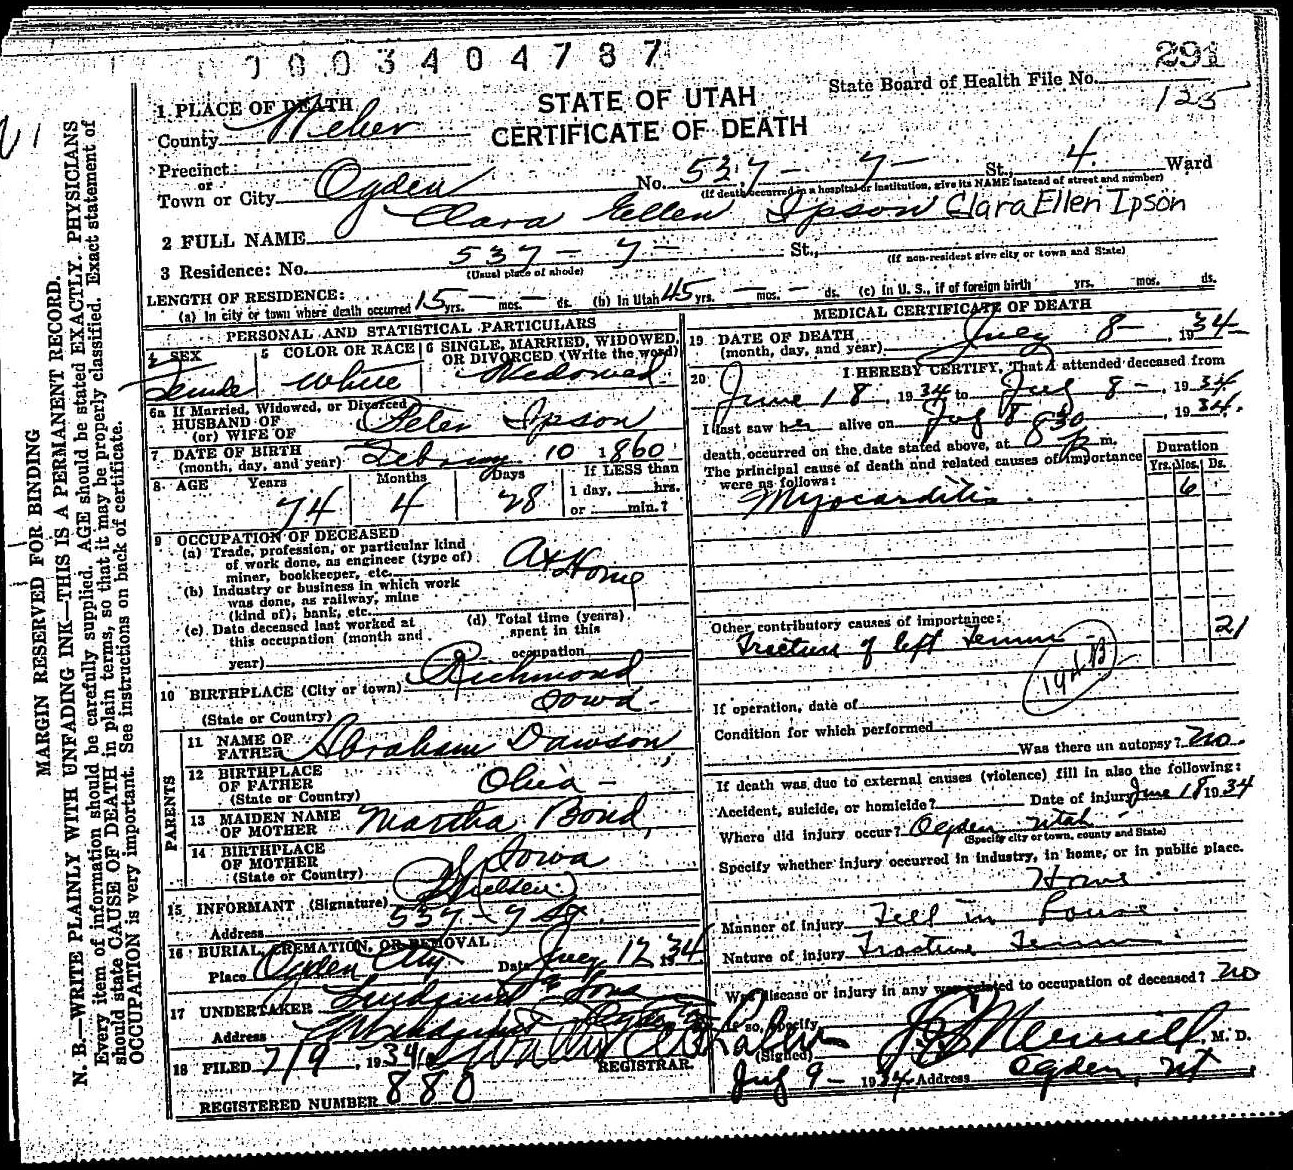 0003404787
291
State Board of Health File No.
125
STATE OF UTAH
CERTIFICATE OF DEATH
1 PLACE OF DEATH
County Weber
Precinct
or
Town or City Ogden No. 537 - 7 - St., 4. Ward
(If death occurred in a hospital or institution, give its NAME instead of street and number)
2 FULL NAME Clara Ellen Ipson Clara Ellen Ipson
3 Residence: No. 537 - 7 - St.,
(Usual place of abode) (If non-resident give city or town and State)
LENGTH OF RESIDENCE:
(a) In city or town where death occurred 15 yrs. - mos. - ds. (b) In Utah 45 yrs. - mos. - ds. (c) In U. S., if of foreign birth yrs. mos. ds.
PERSONAL AND STATISTICAL PARTICULARS
4 SEX Female
5 COLOR OR RACE White
6 SINGLE, MARRIED, WIDOWED, OR DIVORCED (Write the word) Widowed
6a If Married, Widowed, or Divorced
HUSBAND OF
(or) WIFE OF Peter Ipson
7 DATE OF BIRTH
(month, day, and year) 10 1860
8 AGE Years Months Days If LESS than
74 4 28 1 day, hrs.
or min.?
9 OCCUPATION OF DECEASED
(a) Trade, profession, or particular kind
of work done, as engineer (type of)
miner, bookkeeper, etc. At Home
(b) Industry or business in which work
was done, as railway, mine
(kind of), bank, etc.
(c) Date deceased last worked at
this occupation (month and
year)
(d) Total time (years)
spent in this
occupation
10 BIRTHPLACE (City or town) Richmond
(State or Country) Iowa
PARENTS
11 NAME OF
FATHER Abraham Dawson
12 BIRTHPLACE
OF FATHER Ohio -
(State or Country)
13 MAIDEN NAME
OF MOTHER Martha Bond
14 BIRTHPLACE
OF MOTHER Iowa
(State or Country)
15 INFORMANT (Signature) Nielsen
Address 537 - 7 St.
16 BURIAL, CREMATION, OR REMOVAL
Place Ogden City Date July 12 1934
17 UNDERTAKER & Sons
Address Ogden
18 FILED 7/9, 1934 REGISTRAR.
REGISTERED NUMBER 880
MEDICAL CERTIFICATE OF DEATH
19 DATE OF DEATH
(month, day, and year) July 8 - 1934
20 I HEREBY CERTIFY, That I attended deceased from
June 18, 1934 to July 8 -, 1934
I last saw her alive on July 8, 1934.
death occurred on the date stated above, at 8 30 P m.
The principal cause of death and related causes of importance
were as follows:
Duration
Yrs. Mos. Ds.
Myocarditis 6
Other contributory causes of importance:
Fracture of left Femur 21
194B
If operation, date of
Condition for which performed
Was there an autopsy? no.
If death was due to external causes (violence) fill in also the following:
Accident, suicide, or homicide? Date of injury June 18 1934
Where did injury occur? Ogden Utah
(Specify city or town, county and State)
Specify whether injury occurred in industry, in home, or in public place.
Home
Manner of injury Fell in house
Nature of injury Fracture Femur
Was disease or injury in any way related to occupation of deceased? no
If so, specify
(Signed) Merrill, M. D.
July 9 - 1934 Address Ogden, Ut
MARGIN RESERVED FOR BINDING
N. B.—WRITE PLAINLY WITH UNFADING INK—THIS IS A PERMANENT RECORD.
Every item of information should be carefully supplied. AGE should be stated EXACTLY. PHYSICIANS
should state CAUSE OF DEATH in plain terms, so that it may be properly classified. Exact statement of
OCCUPATION is very important. See instructions on back of certificate.